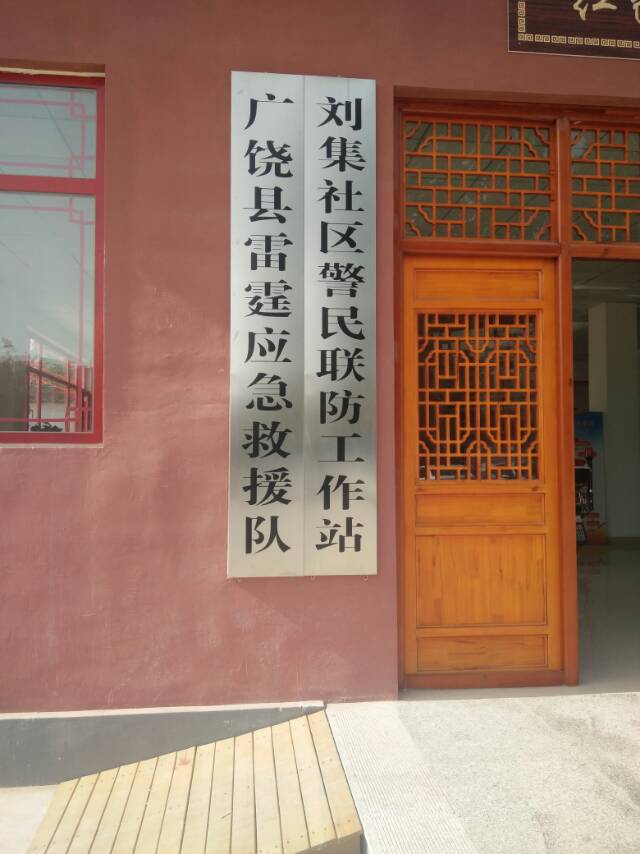 刘集社区警民联防工作站
广饶县雷霆应急救援队
红